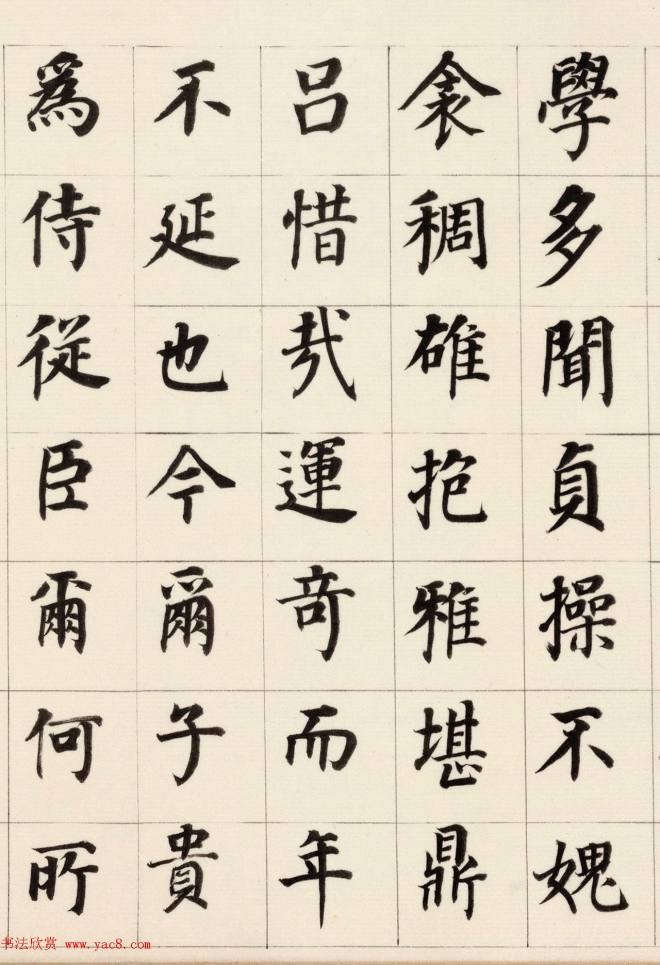 學多聞貞操不媿
衾稠雄抱雅堪鼎
呂惜㦲運奇而年
不延也今爾子貴
為侍從臣爾何所
书法欣赏 www.yac8.com